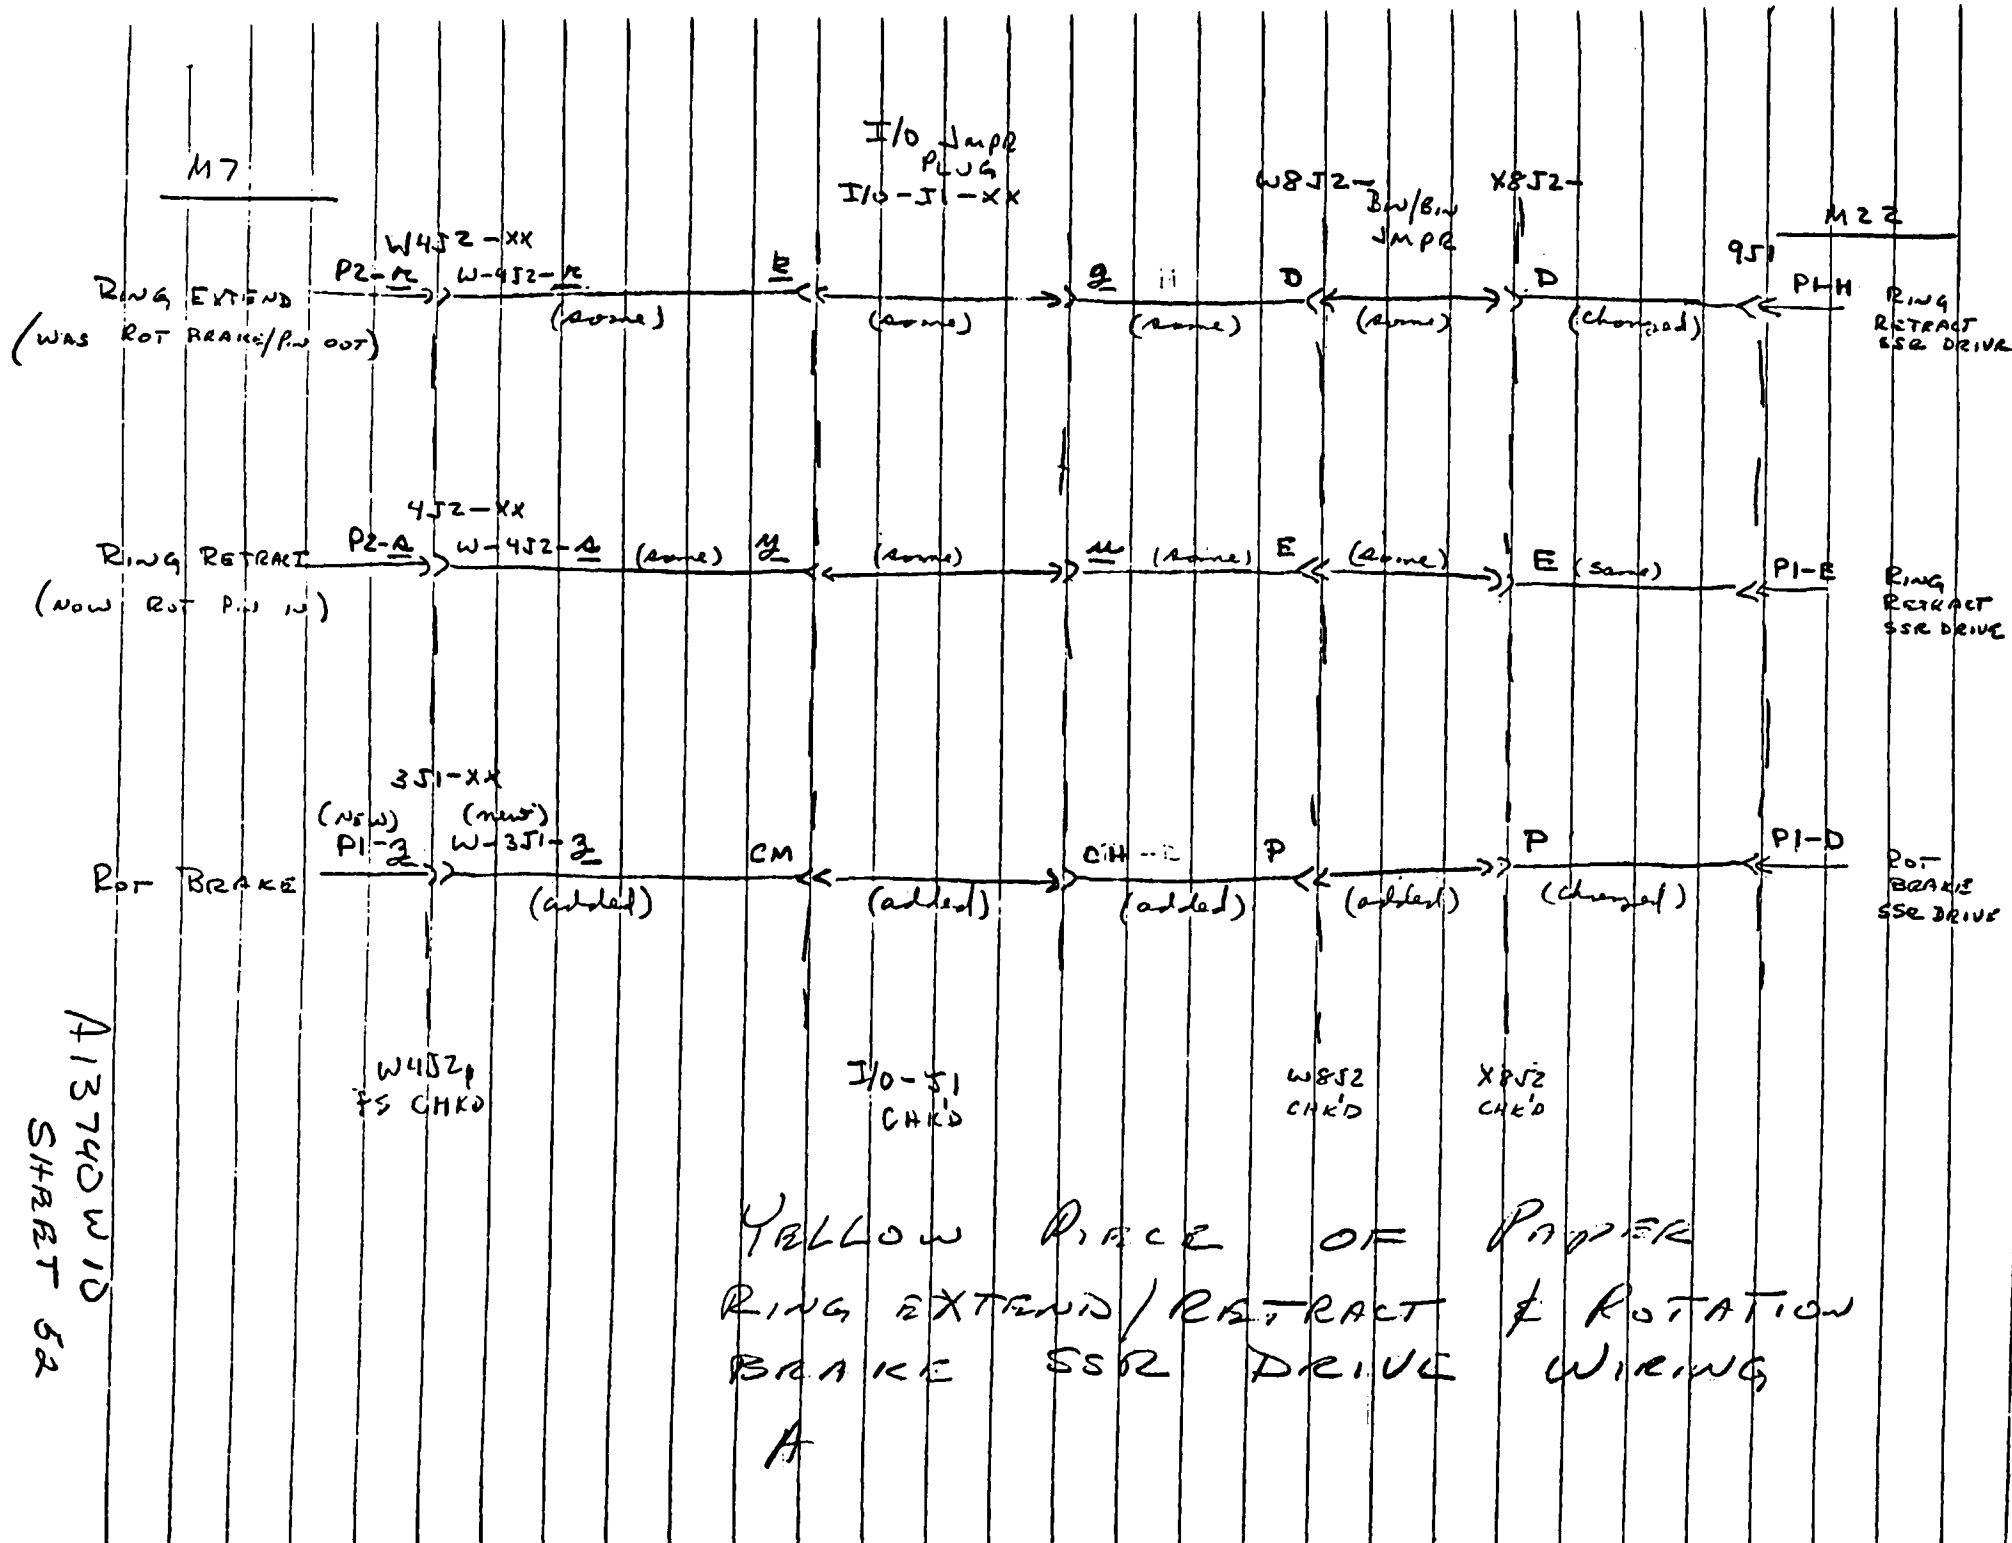 M7
I/O JMPR
PLUG
I/O-J1-XX
W8J2-
BIN/BIN
JMPR
X8J2-
M22
9J1
W4J2-XX
RING EXTEND
(WAS ROT BRAKE/PIN OUT)
P2-r
W-4J2-r
(same)
k
(same)
g
(same)
D
(same)
D
(changed)
P1-H
RING
RETRACT
SSR DRIVE
4J2-XX
RING RETRACT
(NOW ROT PIN IN)
P2-s
W-4J2-s
(same)
y
(same)
u
(same)
E
(same)
E
(same)
P1-E
RING
RETRACT
SSR DRIVE
3J1-XX
ROT BRAKE
(NEW)
P1-z
(new)
W-3J1-z
(added)
CM
(added)
(added)
P
(added)
P
(changed)
P1-D
ROT
BRAKE
SSR DRIVE
W4J2,
CHKD
I/O-J1
CHK'D
W8J2
CHK'D
X8J2
CHK'D
YELLOW PIECE OF PAPER
RING EXTEND/RETRACT & ROTATION
BRAKE SSR DRIVE WIRING
A
A13740W10
SHEET 52